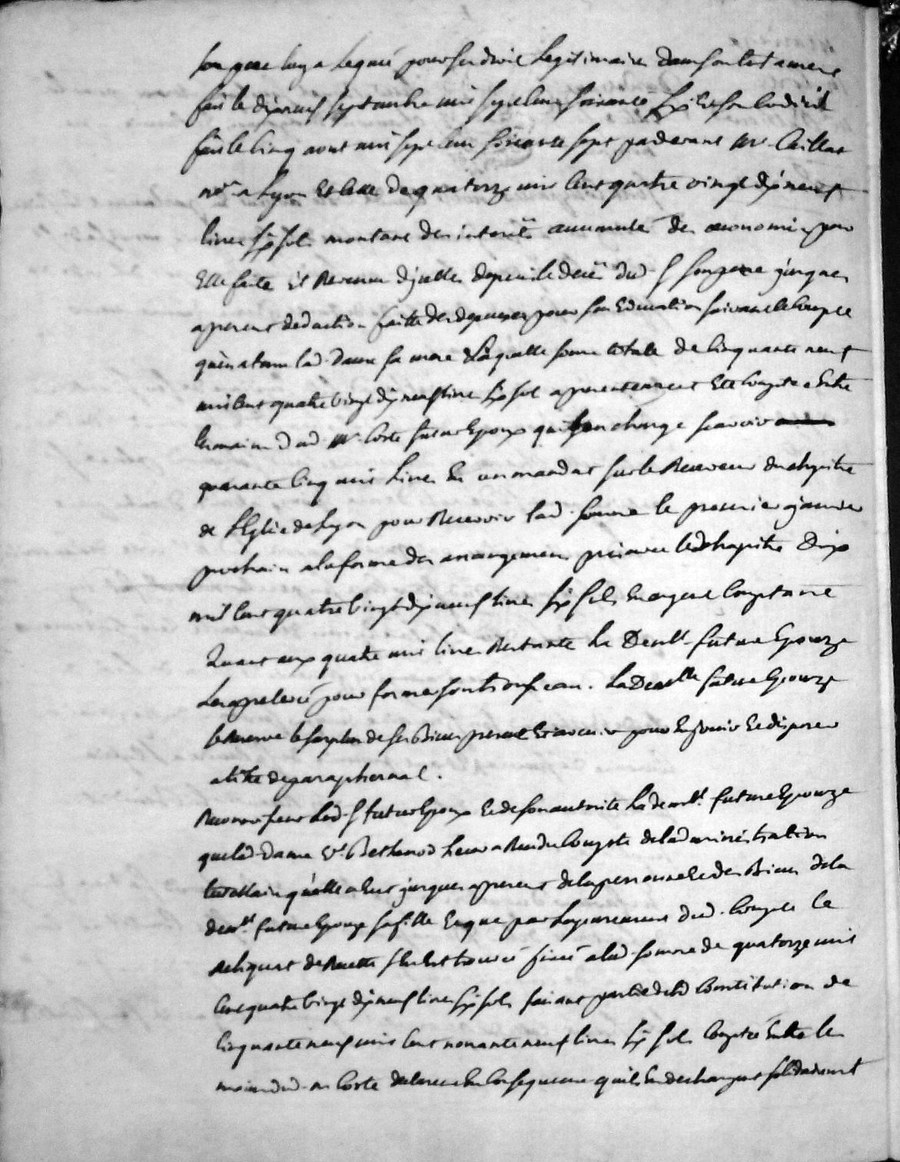 son pere luy a legué pour ses droits legitimaires dans son testament
fait le dixneuf septembre mil sept cent soixante six et son codicil
fait le cinq aout mil sept cent soixante sept pardevant Mr Caillat
nre a Lyon et celle de quatorze mil cent quatre vingt dixneuf
livres six sols montant des interets accumulés des œconomies par
Elle faite et Revenus d'icelles depuis le deces dud Sr son pere jusques
a present deduction faitte des depenses pour son Education suivant le compte
qu'en a tenu lad Dame sa mere Laquelle somme totalle de cinquante neuf
mil cent quatre vingt dix neuf livres six sol a presentement été comptée entre
les mains dud Mr Coste futur Epoux qui s'en charge scavoir
quarante cinq mil Livres En un mandat sur le Receveur du chapitre
de l'Eglise de Lyon pour Recevoir lad somme le premier janvier
prochain a la forme des arrangemens pris avec led chapitre Dix
mil cent quatre vingt dix neuf livres six sols En argent comptant
Quant aux quatre mil livres Restante La Demlle future Epouze
Les a prelevé pour former son trousseau. La Demlle future Epouze
se Reserve le surplus de ses Biens present et avenir pour En jouir et disposer
a titre de paraphernal.
Reconnoissent Led Sr futur Epoux Et de son autorité La demlle future Epouze
que lad Dame Ve Bethenod Leur a Rendu compte de l'administration
tutellaire qu'elle a Eut jusques a present de la personne et des Biens de la
demlle future Epouze sa fille Et que par L'apurement dud compte le
Reliquat de Recette s'est trouvé fixé a lad somme de quatorze mil
cent quatre vingt dix neuf livres six sols faisant partie de lad Constitution de
cinquante neuf mil cent nonante neuf livres six sols comptée Entre les
mains dud Mr Coste de laquelle En consequence qu'ils En dechargent solidairement